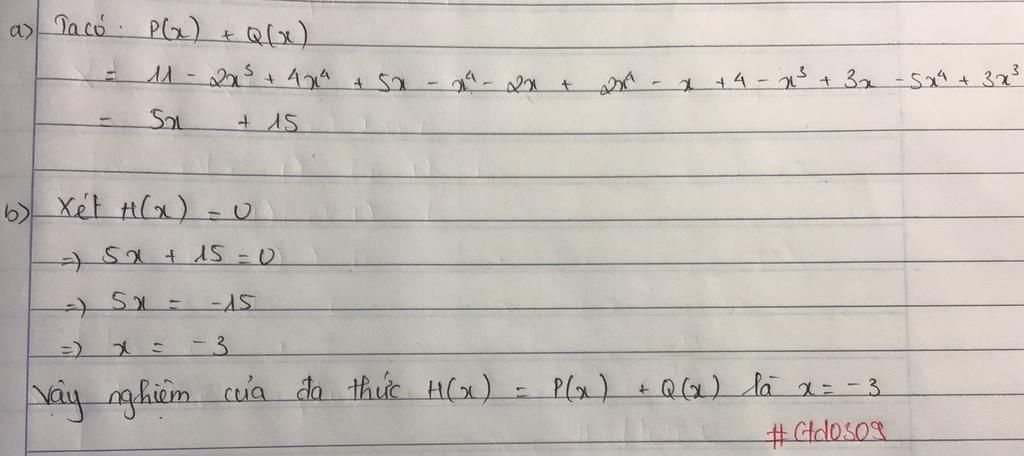 a) Ta có: P(x) + Q(x)
= 11 - 2x³ + 4x⁴ + 5x - x⁴ - 2x + 2x⁴ - x + 4 - x³ + 3x - 5x⁴ + 3x³
= 5x + 15
b) Xét H(x) = 0
=) 5x + 15 = 0
=) 5x = -15
=) x = -3
Vậy nghiệm của đa thức H(x) = P(x) + Q(x) là x = -3